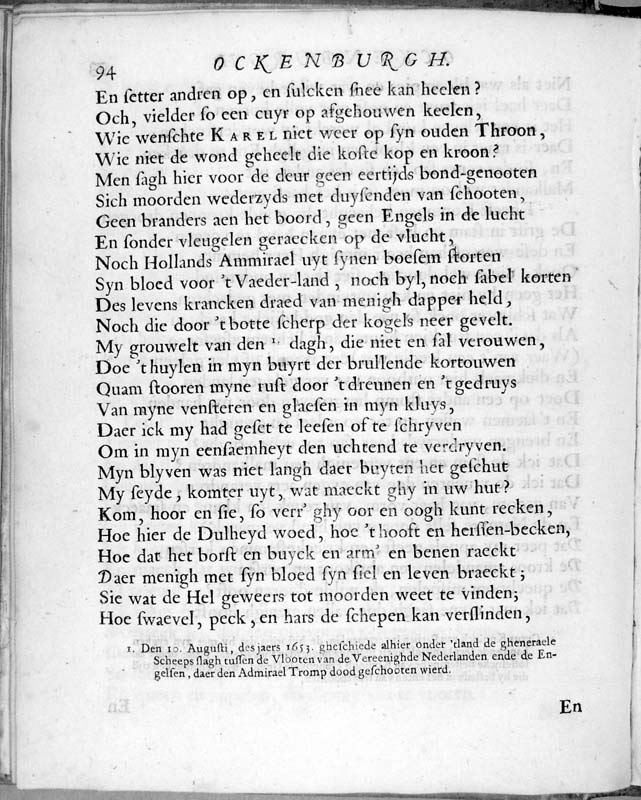 94
OCKENBURGH.
En ſetter andren op, en ſulcken ſnee kan heelen?
Och, vielder ſo een cuyr op afgehouwen keelen,
Wie wenſchte KAREL niet weer op ſyn ouden Throon,
Wie niet de wond geheelt die koſte kop en kroon?
Men ſagh hier voor de deur geen eertijds bond-genooten
Sich moorden wederzyds met duyſenden van ſchooten,
Geen branders aen het boord, geen Engels in de lucht
En ſonder vleugelen geraecken op de vlucht,
Noch Hollands Ammirael uyt ſynen boeſem ſtorten
Syn bloed voor 't Vaeder-land, noch byl, noch ſabel korten
Des levens krancken draed van menigh dapper held,
Noch die door 't botte ſcherp der kogels neer gevelt.
My grouwelt van den 1. dagh, die niet en ſal verouwen,
Doe 't huylen in myn buyrt der brullende kortouwen
Quam ſtooren myne ruſt door 't dreunen en 't gedruys
Van myne venſteren en glaeſen in myn kluys,
Daer ick my had geſet te leeſen of te ſchryven
Om in myn eenſaemheyt den uchtend te verdryven.
Myn blyven was niet langh daer buyten het geſchut
My ſeyde, komter uyt, wat maeckt ghy in uw hut?
Kom, hoor en ſie, ſo verr' ghy oor en oogh kunt recken,
Hoe hier de Dulheyd woed, hoe 't hooft en herſſen-becken,
Hoe dat het borſt en buyck en arm' en benen raeckt
Daer menigh met ſyn bloed ſyn ſiel en leven braeckt;
Sie wat de Hel geweers tot moorden weet te vinden;
Hoe ſwaevel, peck, en hars de ſchepen kan verſlinden,
1. Den 10. Auguſti, des jaers 1653. gheſchiede alhier onder 'tland de gheneraele
Scheeps ſlagh tuſſen de Vlooten van de Vereenighde Nederlanden ende de En-
gelſen, daer den Admirael Tromp dood geſchooten wierd.
En